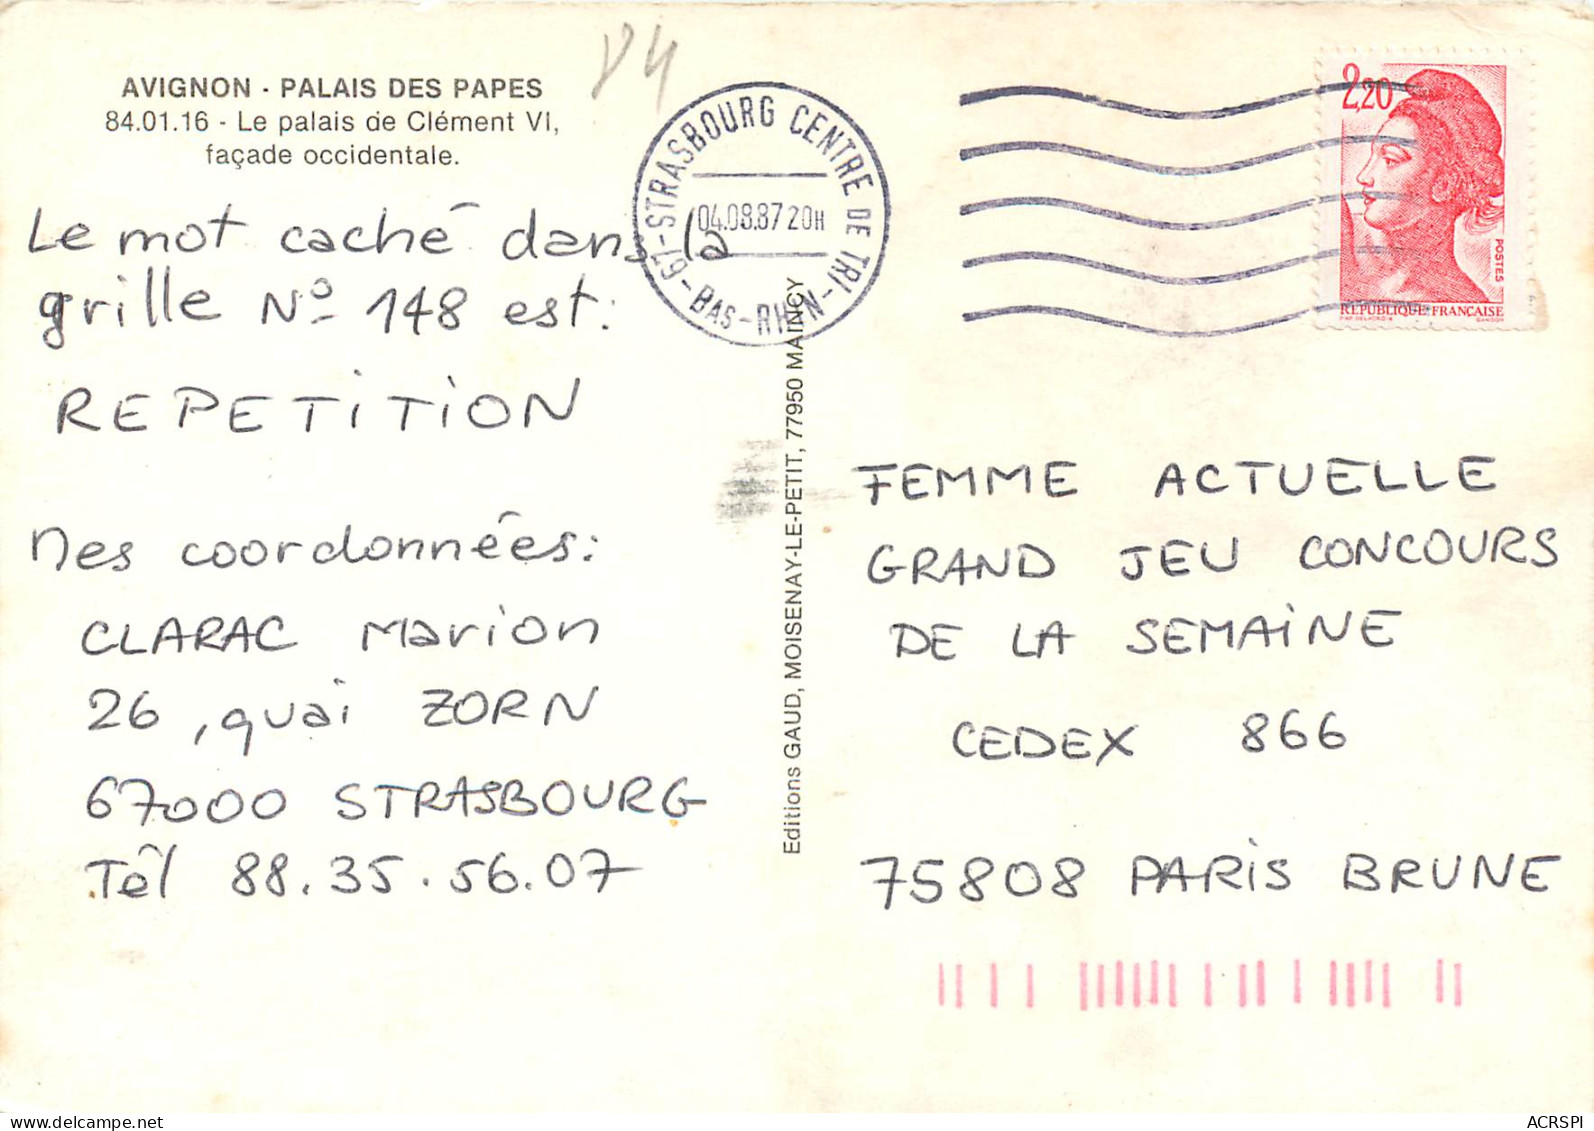 AVIGNON - PALAIS DES PAPES
84.01.16 - Le palais de Clément VI,
façade occidentale.
Le mot caché dans la
grille N° 148 est:
REPETITION
Mes coordonnées:
CLARAC Marion
26, quai ZORN
67000 STRASBOURG
Tél 88.35.56.07
84
67-STRASBOURG CENTRE DE TRI-
04.08.87 20H
BAS-RHIN
Editions GAUD, MOISENAY-LE-PETIT, 77950 MAINCY
2,20
POSTES
REPUBLIQUE FRANÇAISE
FEMME ACTUELLE
GRAND JEU CONCOURS
DE LA SEMAINE
CEDEX 866
75808 PARIS BRUNE
ACRSPI